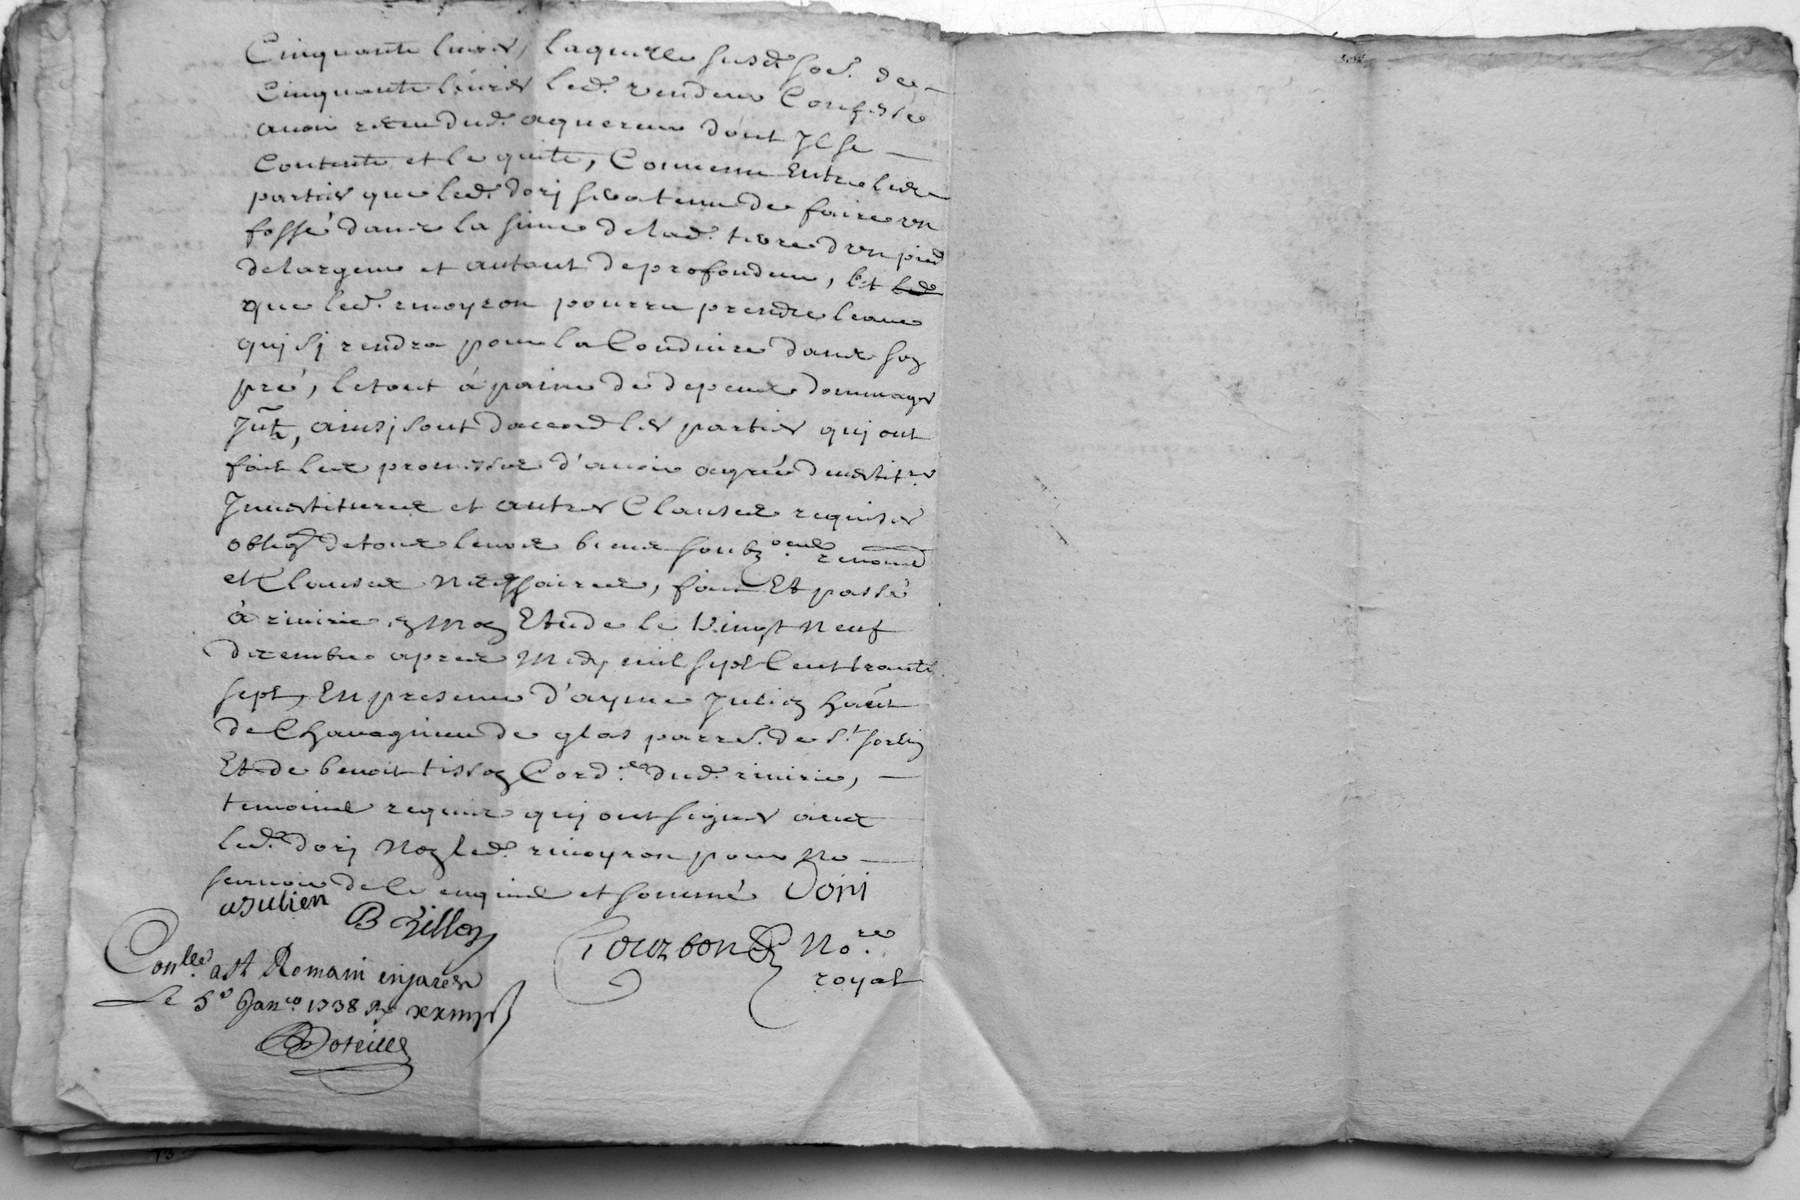 Cinquante livres, laquelle susd.e so.e de
Cinquante livres led. vendeur Confesse
avoir receu dud. aquereur dont Jl se
Contente et le quite, Convenu Entre lesd.
parties que led. dorj sera tenu de faire un
fossé dans la sime de lad. terre d'un pied
de largeur et autant de profondeur, et led
que led. rivoyron pourra prendre leaue
quj sj rendra pour la Conduire dans son
pré, le tout à paine de depens dommages
Jnts, ainsj sont d'acord les parties quj ont
fait les promesses d'avoir agrée
Jnvestitures et autres Clauses requises
oblig.on de tous leurs biens soub.ons renon.ons
et Clauses necessaires, fait Et passé
à rivirie en mon Etude le Vingt Neuf
decembre apres Midy mil sept Cent trante
sept, En presence d'ayme Julien ha.nt
de Chavagnieu de glas parr.e de S.t sorlin
Et de benoit tisson Cord.er dud. rivirie,
temoins requis quj ont signés avec
led. dorj Non led. rivoyron pour ne
sçavoir de ce enquis et sommé Dorj
a Julien
B tisson
Tourbon No.re
royal
Con.lle a St Romain en jarest
Le 5e Jan.er 1738 R